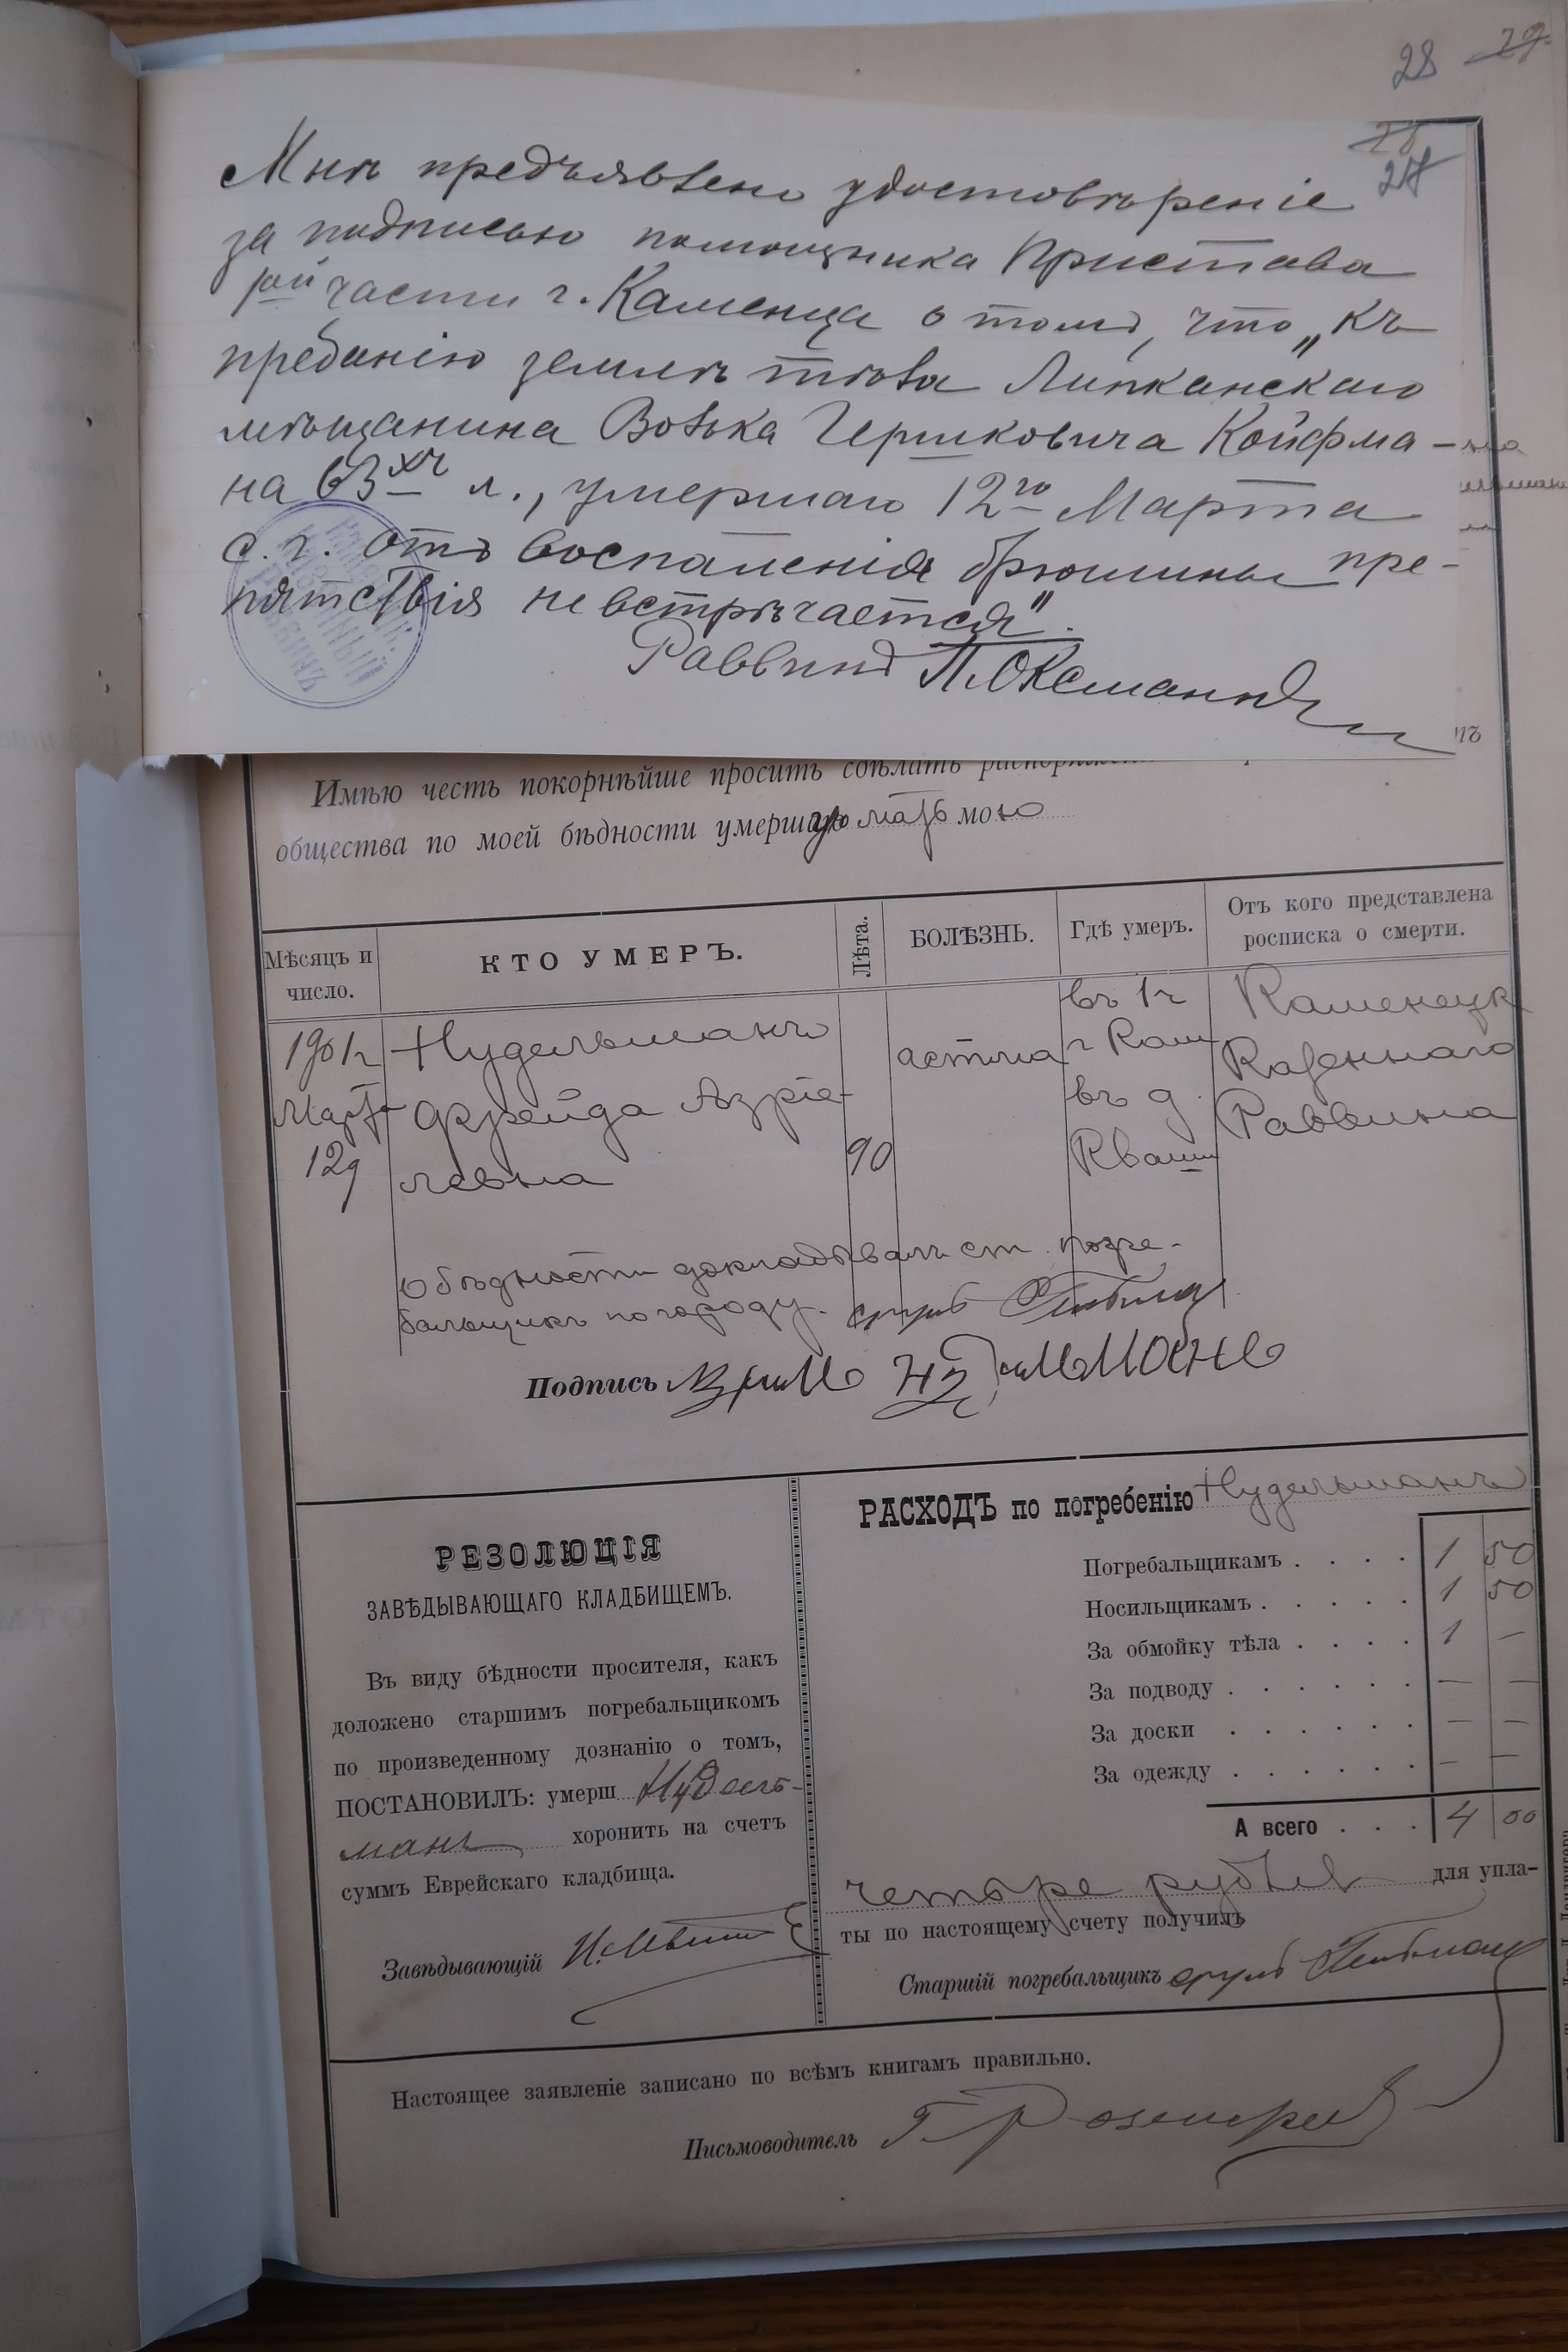 28 29
28
27
Мнѣ предъявлено удостовѣреніе
за подписью помощника Пристава
1ой части г. Каменца о томъ, что „къ
преданію землѣ тѣла Липканскаго
мѣщанина Волька Гершковича Койфма-
на 63хъ л., умершаго 12го Марта
с. г. отъ воспаленія брюшины пре-
пятствія не встрѣчается".
Раввинъ П. Оксманъ
Имѣю честь покорнѣйше просить сдѣлать
общества по моей бѣдности умершую мать мою
Мѣсяцъ и число.
КТО УМЕРЪ.
Лѣта.
БОЛѢЗНЬ.
Гдѣ умеръ.
Отъ кого представлена росписка о смерти.
1901г Марта 12д
Нудельманъ Фрейда Азріе-
левна
90
астма
въ 1ч
г Кам
въ д.
Кваши
Каменецк
Казеннаго
Раввина
О бѣдности докладывалъ ст. погре-
бальщикъ по городу. сруль
Подпись
РЕЗОЛЮЦІЯ
ЗАВѢДЫВАЮЩАГО КЛАДБИЩЕМЪ.
Въ виду бѣдности просителя, какъ
доложено старшимъ погребальщикомъ
по произведенному дознанію о томъ,
ПОСТАНОВИЛЪ: умерш Нудель-
манъ хоронить на счетъ
суммъ Еврейскаго кладбища.
Завѣдывающій
РАСХОДЪ по погребенію Нудельманъ
Погребальщикамъ . . . . 1 50
Носильщикамъ . . . . . 1 50
За обмойку тѣла . . . . 1 —
За подводу . . . . . . — —
За доски . . . . . . — —
За одежду . . . . . . — —
А всего . . . 4 00
четыре рубля для упла-
ты по настоящему счету получилъ
Старшій погребальщикъ сруль
Настоящее заявленіе записано по всѣмъ книгамъ правильно.
Письмоводитель